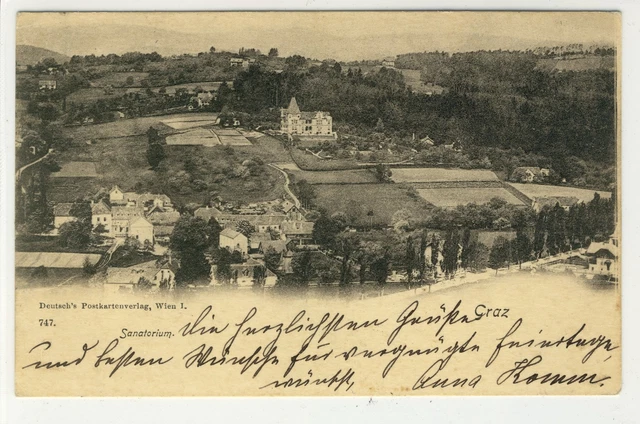 Deutsch's Postkartenverlag, Wien I.
747.
Graz
Sanatorium.
Die herzlichsten Grüße
und besten Wünsche für vergnügte Feiertage,
wünscht, Anna Komm.